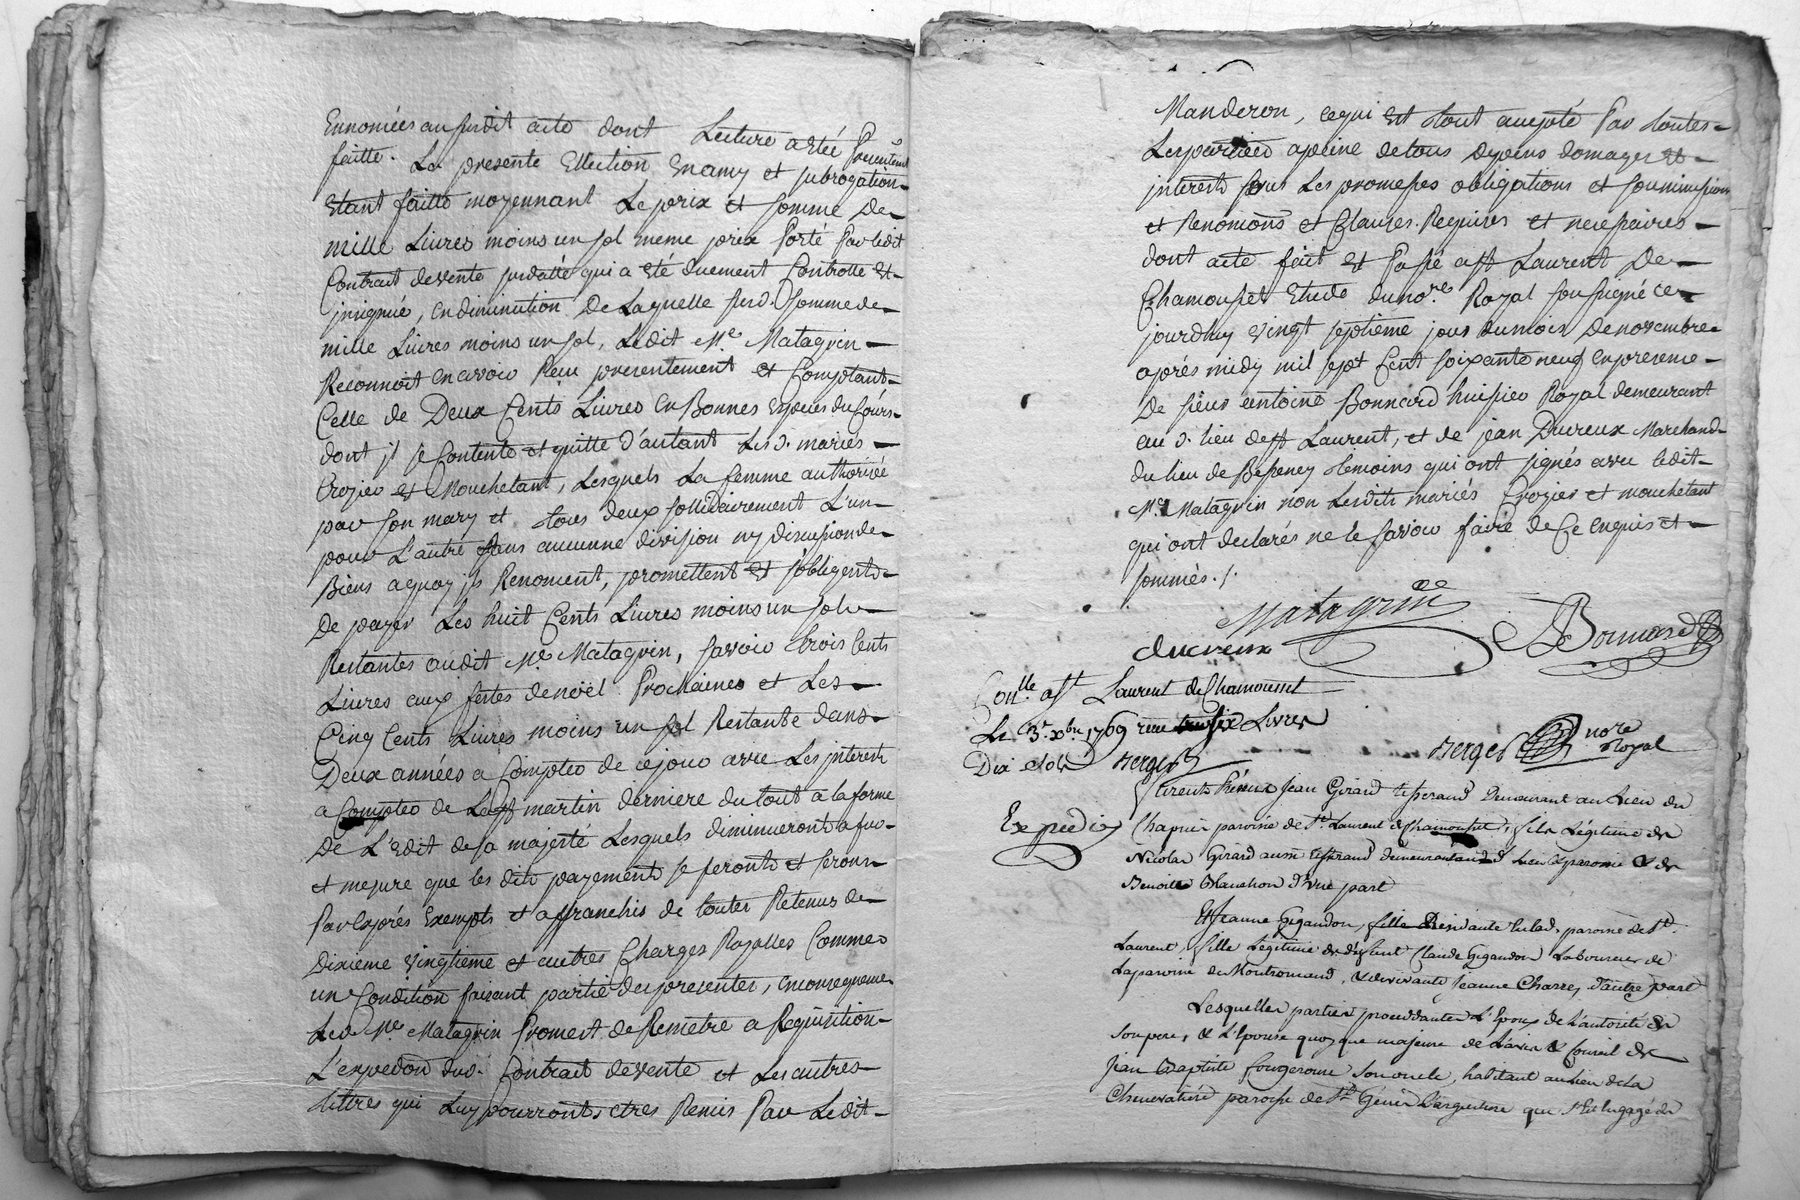 Ennomées au susdit acte dont Lecture a etée Presentemt
faitte. La presente Ellection En amy et subrogation
Etant faitte moyennant Le prix et somme De
mille Livres moins un sol meme prix Porté Par ledit
Contrat de vente susdatté qui a eté duement Controlle Et
insignué, en diminution De Laquelle susd. somme de
mille Livres moins un sol, Ledit Me. Matagrin
Reconnoit en avoir Reçu presentement et Comptant
Celle de Deux Cents Livres en Bonnes Especes du Cours
dont jl se Contente et quitte d'autant Lesd. mariés
Crozier et Mouchetant, Lesquels La femme authorisée
par son mary et tous deux sollidairement L'un
pour L'autre sans aucunne division ny discussion de
Biens a quoy jls Renoncent, promettent et s'obligent
De payer Les huit Cents Livres moins un sol
Restantes audit Me. Matagrin, savoir trois Cents
Livres aux fettes de noël Prochaines et Les
Cinq Cents Livres moins un sol Restante dans
Deux années a Compter de ce jour avec Les jnterets
a Compter de La st martin derniere du tout a la forme
De L'Edit de sa majesté Lesquels diminueront a fur
et mesure que les dits payements se feront et seront
Par Exprés Exempts et affranchis de toutes Retenus de
Dixieme vingtieme et autres Charges Royalles Comme
une Condition faisant partie des presentes, en consequence
Led. Me. Matagrin Promest de Remetre a Requisition
L'expedôn dud. Contrat de vente et Les autres
tittres qui Luy pourronts etres Remis Par Ledit
Manderon, ce qui Est tout accepté Par toutes
Les parties a peine de tous dépens domages et
jnterets sous Les promesses obligations et soumissions
et Renonciôns et Clauses Requises et necessaires
dont acte fait et Passé a st Laurent De
Chamousset Etude du nore. Royal soussigné ce
jourdhuy vingt septieme jour du mois De novembre
aprés midy mil sept Cent soixante neuf en presence
De sieur antoine Bonnard huissier Royal demeurant
au d. lieu de st Laurent, et de jean Ducreux Marchand
du lieu de Bessenay temoins qui ont signés avec ledit
Me. Matagrin non Lesdits mariés Crozier et mouchetant
qui ont declarés ne le savoir faire de Ce enquis et
sommés ./.
Matagrin
ducreux Bonnard
Conlle. a st Laurent de Chamousset
Le 3e. xbre 1769 reçu six Livres
Dix sols Berger
Berger nore Royal
Expedié
furents Présens Jean Girard tisserand Demeurant au Lieu du
Chapuis paroisse de St. Laurent de Chamousset, fils Légitime de
Nicolas Girard aussi tisserand demeurant aud. Lieu & paroisse & de
Benoitte Blanchon d'une part
Et Jeanne Gigandon, fille paroisse de St.
Laurent, fille Légitime de défunt Claude Gigandon Laboureur de
La paroisse de Montromand, & de vivante Jeanne Charre, d'autre part
Lesquelles parties procedantes L'Epoux de L'autorité de
son pere, & L'Epouse quoyque majeure de L'avis & Conseil de
Jean Baptiste fougerouse son oncle, habitant au Lieu de La
Chenevatiere paroisse de St Genis L'argentiere qui s'Est Engagé de